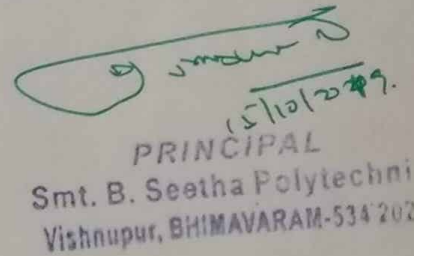 15/10/2019.
PRINCIPAL
Smt. B. Seetha Polytechni
Vishnupur, BHIMAVARAM-534 202